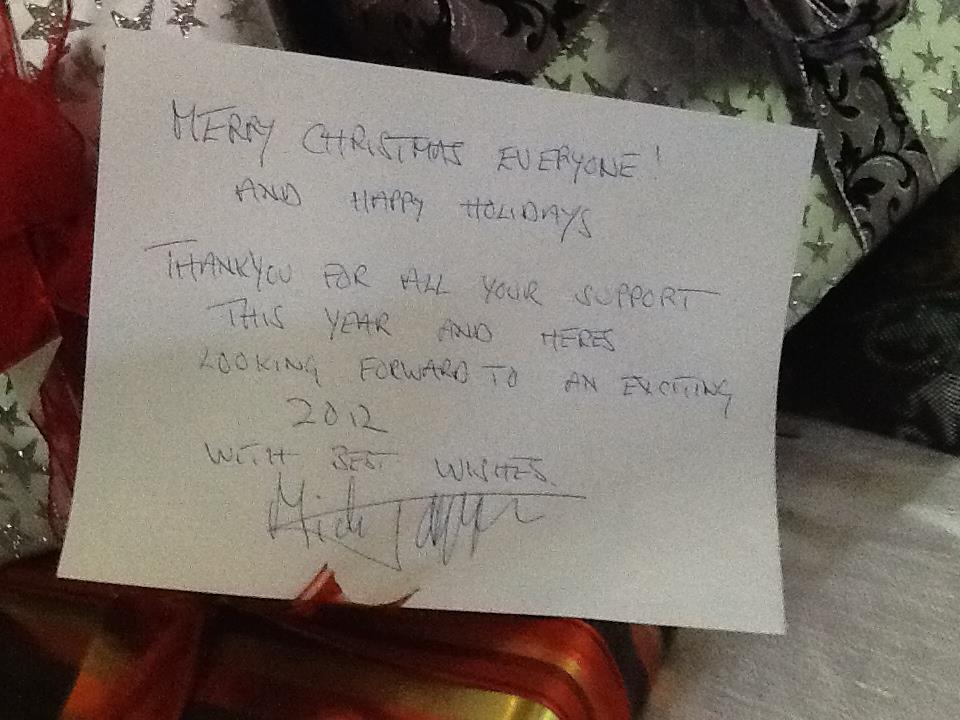 MERRY CHRISTMAS EVERYONE!
AND HAPPY HOLIDAYS
THANKYOU FOR ALL YOUR SUPPORT
THIS YEAR AND HERES
LOOKING FORWARD TO AN EXCITING
2012
WITH BEST WISHES.
Mick Taylor